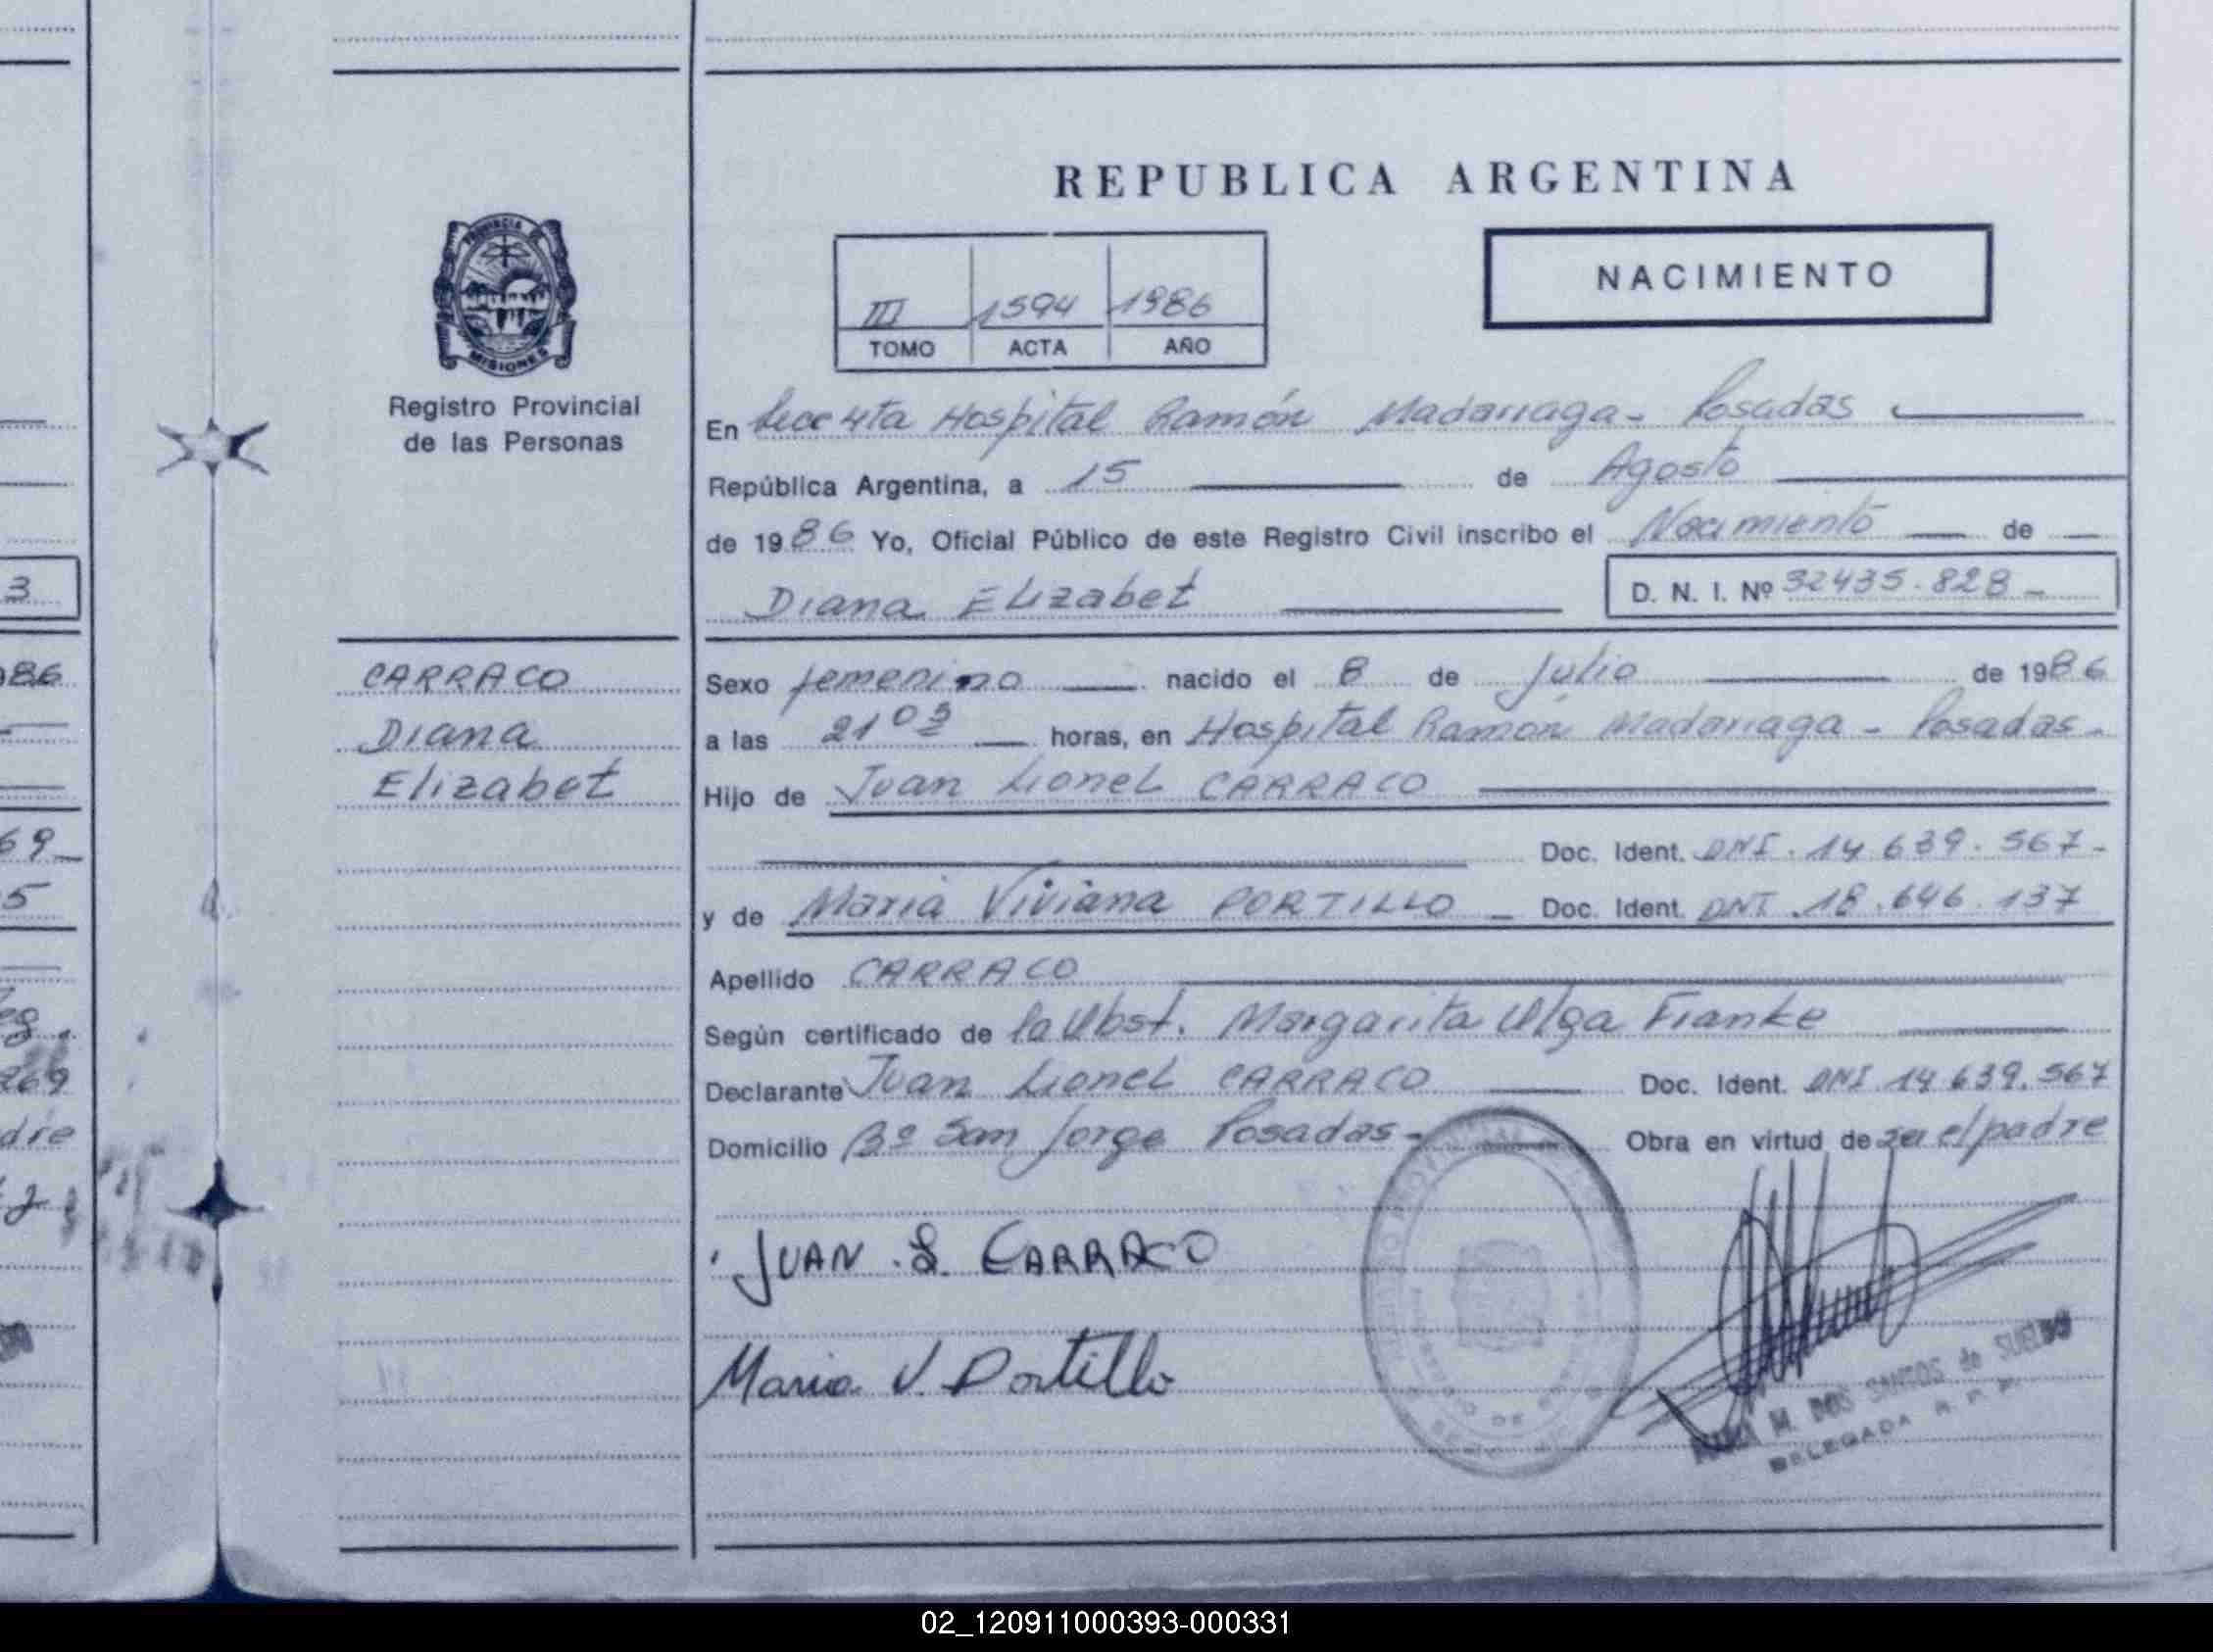 REPUBLICA ARGENTINA
NACIMIENTO
III 1594 1986
TOMO ACTA AÑO
PROVINCIA DE
MISIONES
Registro Provincial
de las Personas
En Secc 4ta Hospital Ramón Madariaga - Posadas
República Argentina, a 15 de Agosto
de 1986 Yo, Oficial Público de este Registro Civil inscribo el Nacimiento de
Diana Elizabet D. N. I. Nº 32435.828 -
CARRACO
Diana
Elizabet
Sexo femenino nacido el 8 de Julio de 1986
a las 21 05 horas, en Hospital Ramón Madariaga - Posadas -
Hijo de Juan Lionel CARRACO
Doc. Ident. DNI. 14.639.567 -
y de Maria Viviana PORTILLO - Doc. Ident. DNI. 18.646.137
Apellido CARRACO
Según certificado de la Obst. Margarita Olga Franke
Declarante Juan Lionel CARRACO Doc. Ident. DNI 14.639.567
Domicilio Bº San Jorge Posadas - Obra en virtud de ser el padre
JUAN . L. CARRACO
Maria V. Portillo
M. DOS SANTOS de SUELDO
DELEGADA R. P. P.
3
986
69 -
5
269
dre
02_120911000393-000331